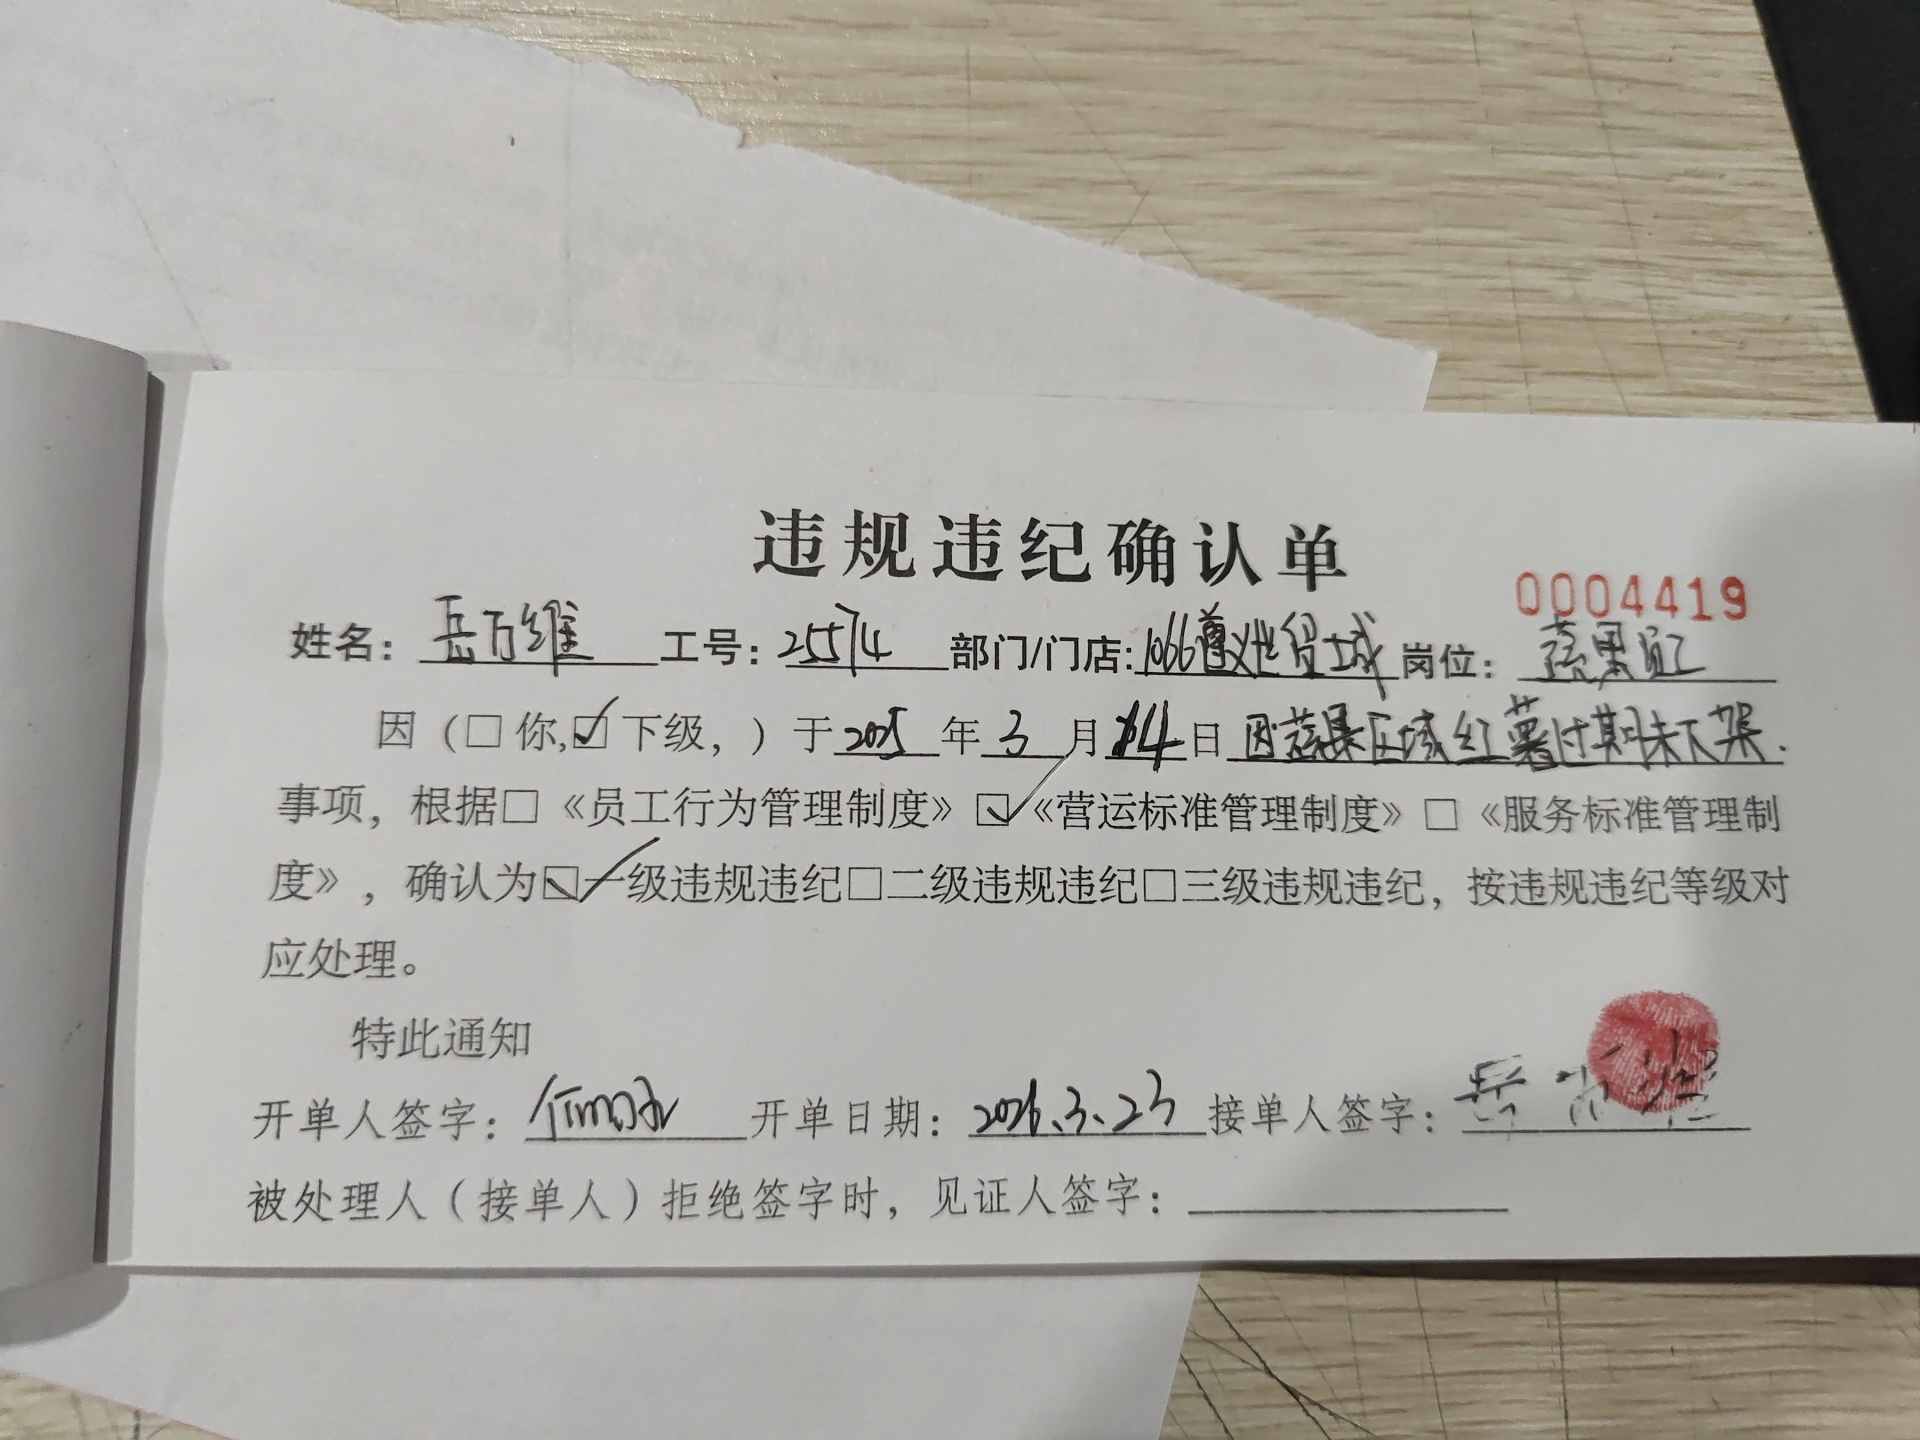 违规违纪确认单
0004419
姓名：岳万维 工号：25574 部门/门店:1066遵义世贸城 岗位：蔬果
因（□你,☑下级，）于2025年3月14日因蔬果区域红薯过期未下架.
事项，根据□《员工行为管理制度》☑《营运标准管理制度》□《服务标准管理制
度》，确认为☑一级违规违纪□二级违规违纪□三级违规违纪，按违规违纪等级对
应处理。
特此通知
开单人签字： 开单日期：2026.3.23 接单人签字：岳万维
被处理人（接单人）拒绝签字时，见证人签字：